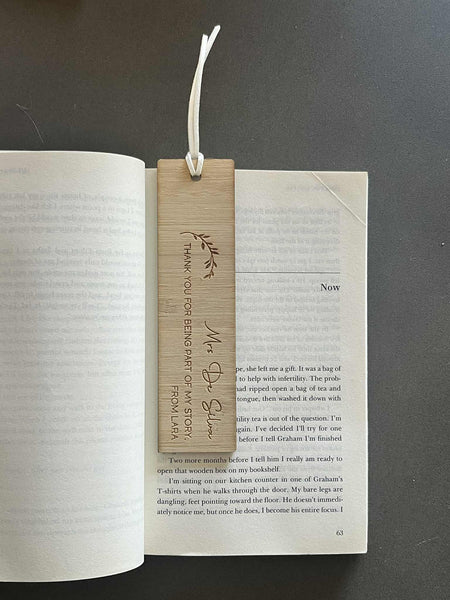 Mrs De Silva
THANK YOU FOR BEING PART OF MY STORY.
FROM LARA
Now
pe, she left me a gift. It was a bag of
l to help with infertility. The prob-
had ripped open a bag of tea and
tongue, then washed it down with
ility tea is out of the question. I'm
gain. I've decided I'll try for one
before I tell Graham I'm finished
Two more months before I tell him I really am ready to
open that wooden box on my bookshelf.
I'm sitting on our kitchen counter in one of Graham's
T-shirts when he walks through the door. My bare legs are
dangling, feet pointing toward the floor. He doesn't immedi-
ately notice me, but once he does, I become his entire focus. I
63